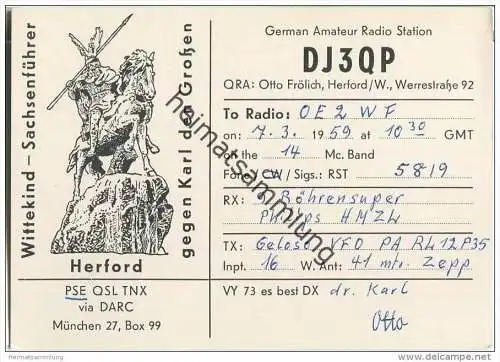 Wittekind – Sachsenführer
gegen Karl den Großen
Herford
PSE QSL TNX
via DARC
München 27, Box 99
German Amateur Radio Station
DJ3QP
QRA: Otto Frölich, Herford/W., Werrestraße 92
To Radio: OE2WF
on: 7.3. 1959 at 10 30 GMT
on the 14 Mc. Band
Fone / CW / Sigs.: RST 5819
RX: Röhrensuper
Philips HMZL
TX: Geloso VFO PA RL12P35
Inpt. 16 W. Ant: 41 mtr. Zepp
VY 73 es best DX dr. Karl
Otto
heimatsammlung.de